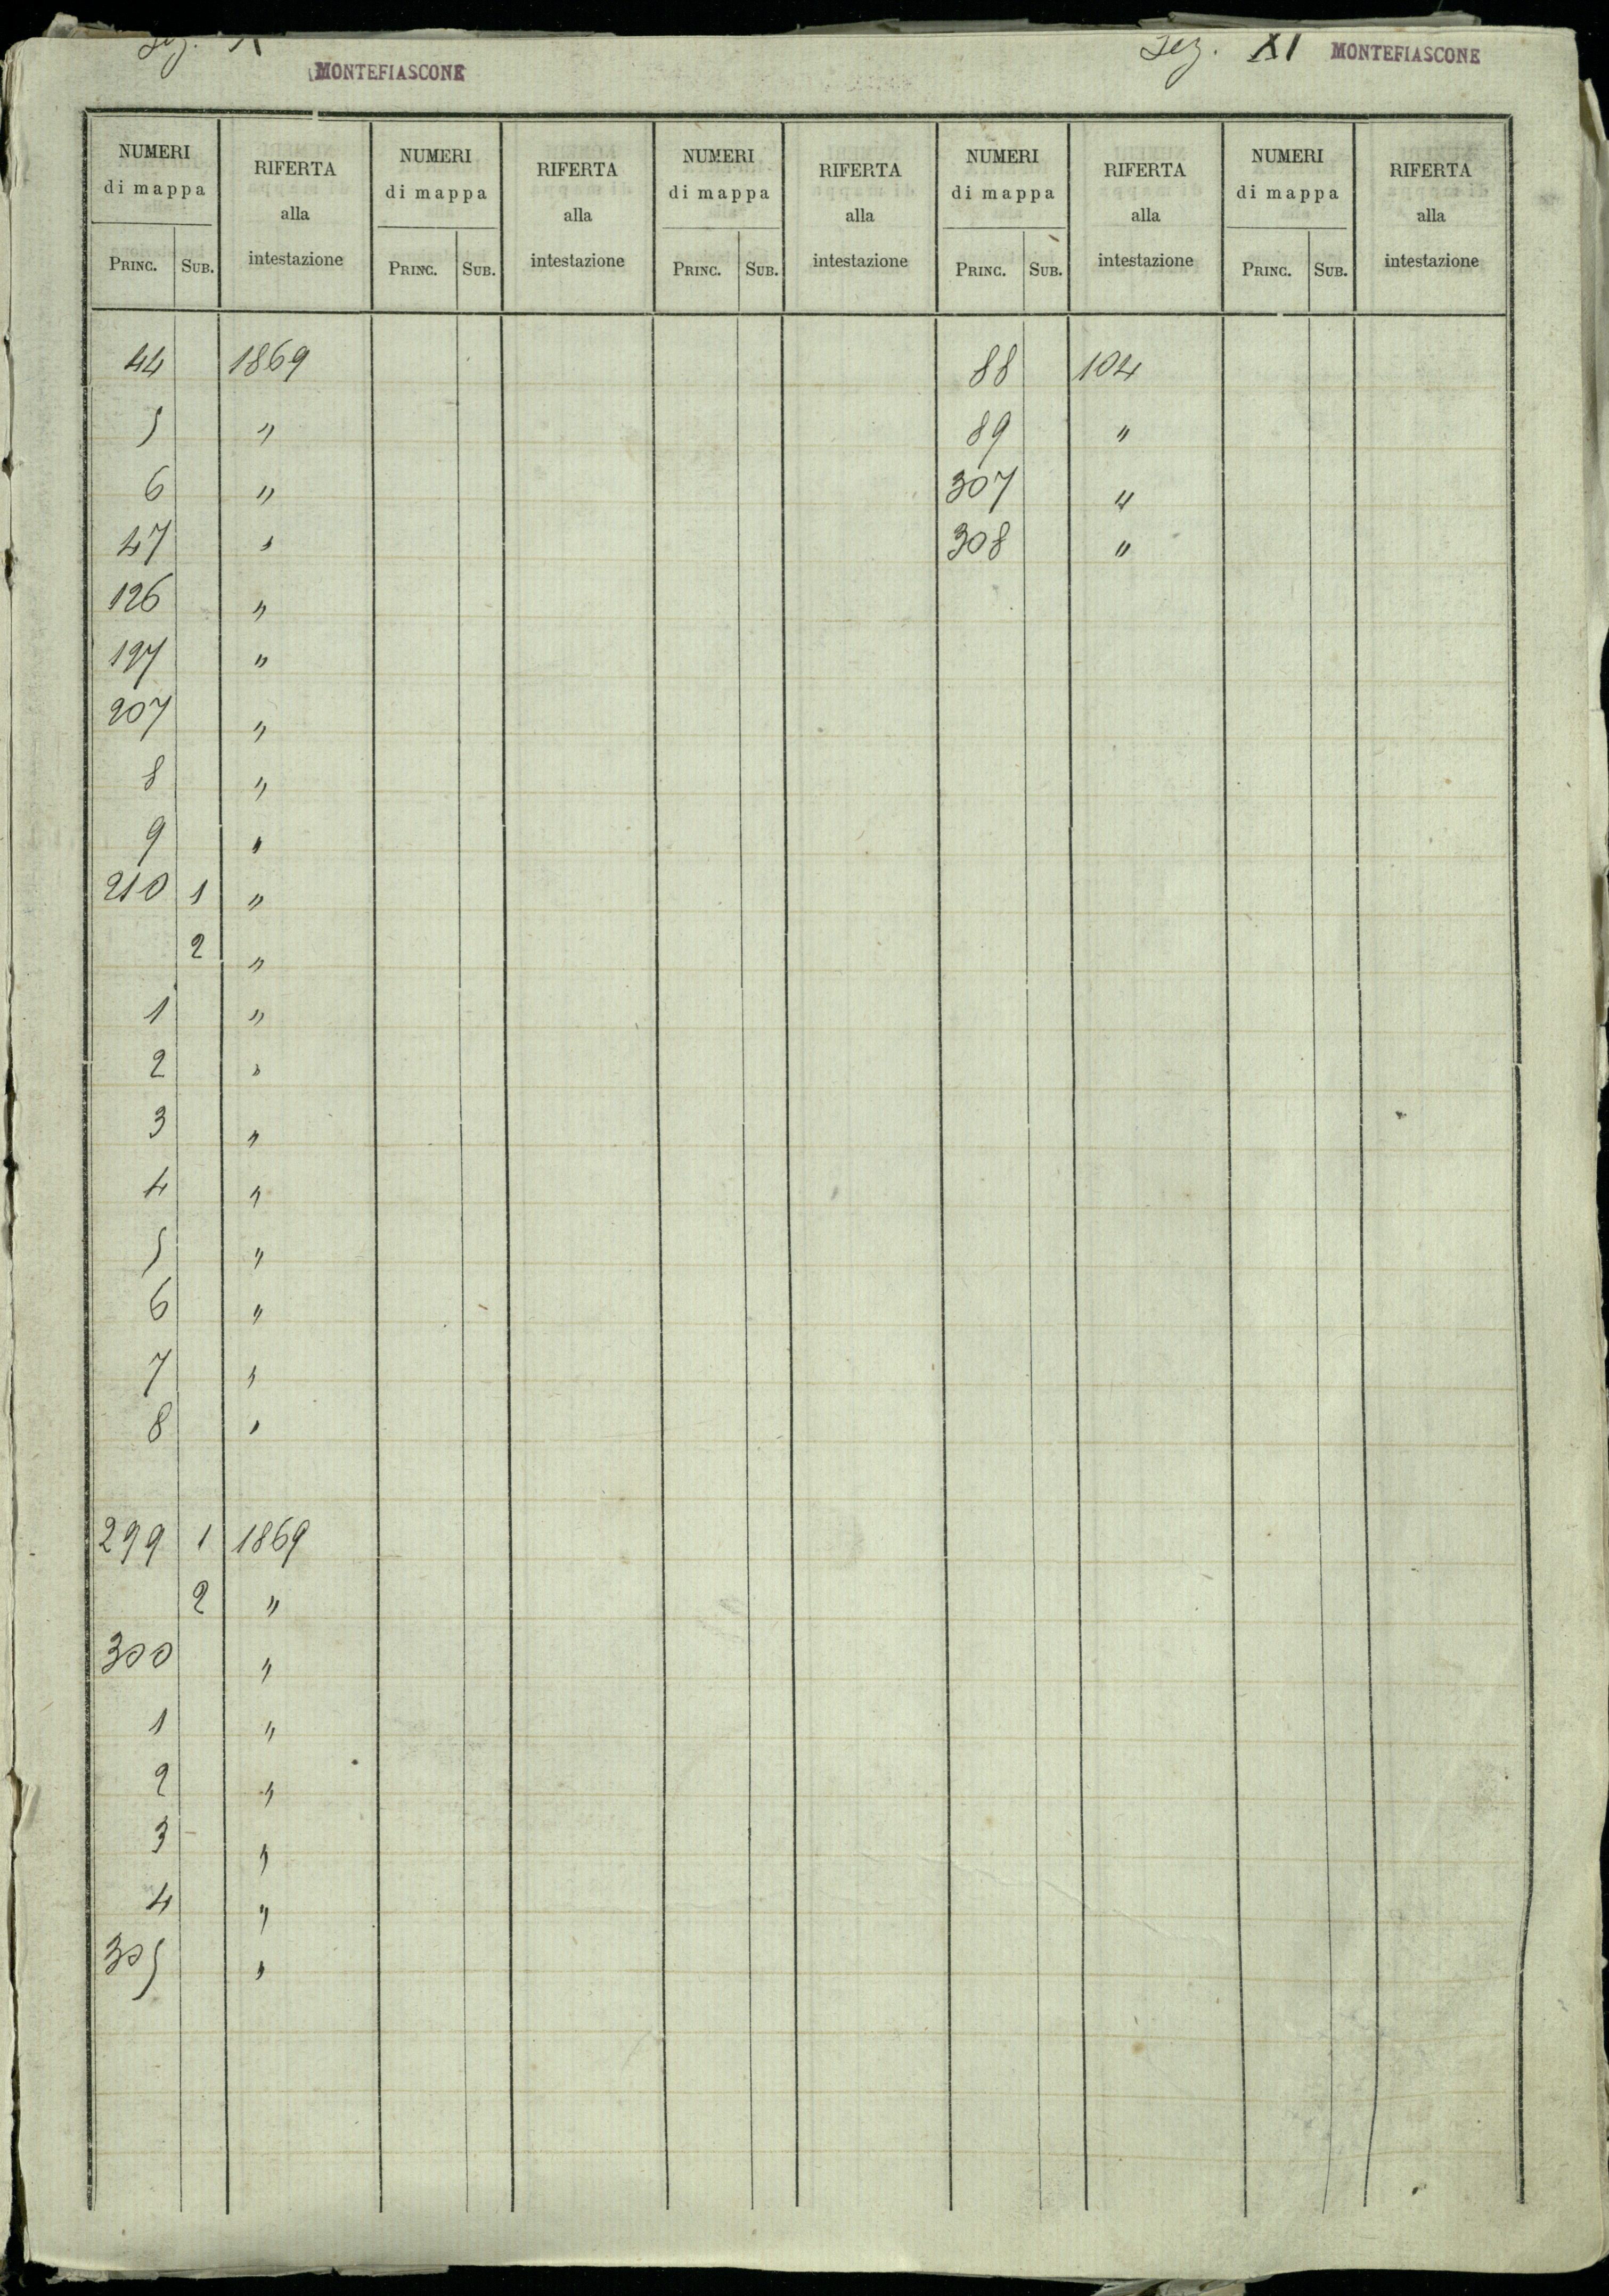 Sez. X MONTEFIASCONE Sez. XI MONTEFIASCONE
NUMERI di mappa RIFERTA alla intestazione NUMERI di mappa RIFERTA alla intestazione NUMERI di mappa RIFERTA alla intestazione NUMERI di mappa RIFERTA alla intestazione NUMERI di mappa RIFERTA alla intestazione
PRINC. SUB. PRINC. SUB. PRINC. SUB. PRINC. SUB. PRINC. SUB.
44 1869 88 104
5 " 89 "
6 " 307 "
47 " 308 "
126 "
197 "
207 "
8 "
9 "
210 1 "
2 "
1 "
2 "
3 "
4 "
5 "
6 "
7 "
8 "
299 1 1869
2 "
300 "
1 "
2 "
3 "
4 "
305 "